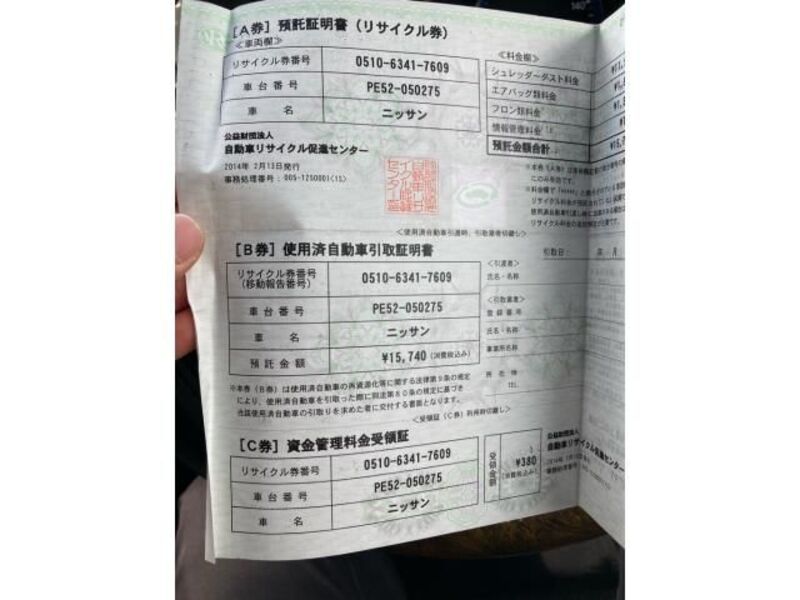 [A券] 預託証明書（リサイクル券）
≪車両欄≫
リサイクル券番号 0510-6341-7609
車台番号 PE52-050275
車名 ニッサン
≪料金欄≫
シュレッダーダスト料金
エアバッグ類料金
フロン類料金
情報管理料金
預託金額合計
公益財団法人
自動車リサイクル促進センター
2014年 2月13日発行
事務処理番号：005-1250001(1S)
＜使用済自動車引渡時、引取業者切離し＞
[B券] 使用済自動車引取証明書
引取日： 年 月
リサイクル券番号
(移動報告番号) 0510-6341-7609
車台番号 PE52-050275
車名 ニッサン
預託金額 ¥15,740 (消費税込み)
＜引渡者＞
氏名・名称
＜引取業者＞
登録番号
氏名・名称
事業所名称
所在地
TEL
※本券（B券）は使用済自動車の再資源化等に関する法律第９条の規定
により、使用済自動車を引取った際に同法第８０条の規定に基づき
当該使用済自動車の引取りを求めた者に交付する書面となります。
＜受領証（C券）利用時切離し＞
[C券] 資金管理料金受領証
リサイクル券番号 0510-6341-7609
車台番号 PE52-050275
車名 ニッサン
受領金額 ¥380
(消費税込み)
公益財団法人
自動車リサイクル促進センター